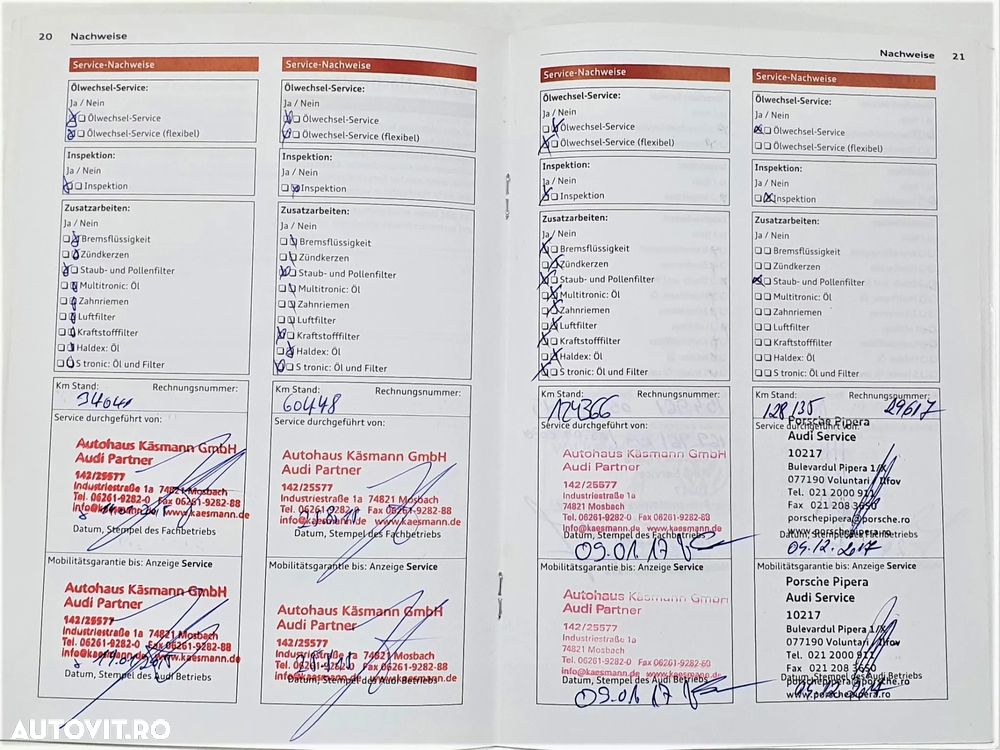 20 Nachweise
Service-Nachweise
Ölwechsel-Service:
Ja / Nein
Ölwechsel-Service
Ölwechsel-Service (flexibel)
Inspektion:
Ja / Nein
Inspektion
Zusatzarbeiten:
Ja / Nein
Bremsflüssigkeit
Zündkerzen
Staub- und Pollenfilter
Multitronic: Öl
Zahnriemen
Luftfilter
Kraftstofffilter
Haldex: Öl
S tronic: Öl und Filter
Km Stand: Rechnungsnummer:
Service durchgeführt von:
Autohaus Käsmann GmbH
Audi Partner
142/25577
Industriestraße 1a 74821 Mosbach
Tel. 06261-9282-0 Fax 06261-9282-88
info@kaesmann.de www.kaesmann.de
Datum, Stempel des Fachbetriebs
Mobilitätsgarantie bis: Anzeige Service
Autohaus Käsmann GmbH
Audi Partner
142/25577
Industriestraße 1a 74821 Mosbach
Tel. 06261-9282-0 Fax 06261-9282-88
info@kaesmann.de www.kaesmann.de
Datum, Stempel des Audi Betriebs
Service-Nachweise
Ölwechsel-Service:
Ja / Nein
Ölwechsel-Service
Ölwechsel-Service (flexibel)
Inspektion:
Ja / Nein
Inspektion
Zusatzarbeiten:
Ja / Nein
Bremsflüssigkeit
Zündkerzen
Staub- und Pollenfilter
Multitronic: Öl
Zahnriemen
Luftfilter
Kraftstofffilter
Haldex: Öl
S tronic: Öl und Filter
Km Stand: Rechnungsnummer:
60448
Service durchgeführt von:
Autohaus Käsmann GmbH
Audi Partner
142/25577
Industriestraße 1a 74821 Mosbach
Tel. 06261-9282-0 Fax 06261-9282-88
info@kaesmann.de www.kaesmann.de
Datum, Stempel des Fachbetriebs
Mobilitätsgarantie bis: Anzeige Service
Autohaus Käsmann GmbH
Audi Partner
142/25577
Industriestraße 1a 74821 Mosbach
Tel. 06261-9282-0 Fax 06261-9282-88
info@kaesmann.de www.kaesmann.de
Datum, Stempel des Audi Betriebs
Nachweise 21
Service-Nachweise
Ölwechsel-Service:
Ja / Nein
Ölwechsel-Service
Ölwechsel-Service (flexibel)
Inspektion:
Ja / Nein
Inspektion
Zusatzarbeiten:
Ja / Nein
Bremsflüssigkeit
Zündkerzen
Staub- und Pollenfilter
Multitronic: Öl
Zahnriemen
Luftfilter
Kraftstofffilter
Haldex: Öl
S tronic: Öl und Filter
Km Stand: Rechnungsnummer:
124366
Service durchgeführt von:
Autohaus Käsmann GmbH
Audi Partner
142/25577
Industriestraße 1a
74821 Mosbach
Tel. 06261-9282-0 Fax 06261-9282-88
info@kaesmann.de www.kaesmann.de
Datum, Stempel des Fachbetriebs
09.01.17
Mobilitätsgarantie bis: Anzeige Service
Autohaus Käsmann GmbH
Audi Partner
142/25577
Industriestraße 1a
74821 Mosbach
Tel. 06261-9282-0 Fax 06261-9282-88
info@kaesmann.de www.kaesmann.de
Datum, Stempel des Audi Betriebs
09.01.17
Service-Nachweise
Ölwechsel-Service:
Ja / Nein
Ölwechsel-Service
Ölwechsel-Service (flexibel)
Inspektion:
Ja / Nein
Inspektion
Zusatzarbeiten:
Ja / Nein
Bremsflüssigkeit
Zündkerzen
Staub- und Pollenfilter
Multitronic: Öl
Zahnriemen
Luftfilter
Kraftstofffilter
Haldex: Öl
S tronic: Öl und Filter
Km Stand: Rechnungsnummer:
128135 29617
Service durchgeführt von:
Porsche Pipera
Audi Service
10217
Bulevardul Pipera 1/X
077190 Voluntari / Ilfov
Tel. 021 2000 911
Fax 021 208 3650
porschepipera@porsche.ro
www.porschepipera.ro
Datum, Stempel des Fachbetriebs
04.12.2017
Mobilitätsgarantie bis: Anzeige Service
Porsche Pipera
Audi Service
10217
Bulevardul Pipera 1/X
077190 Voluntari / Ilfov
Tel. 021 2000 911
Fax 021 208 3650
porschepipera@porsche.ro
Datum, Stempel des Audi Betriebs
www.porschepipera.ro
AUTOVIT.RO